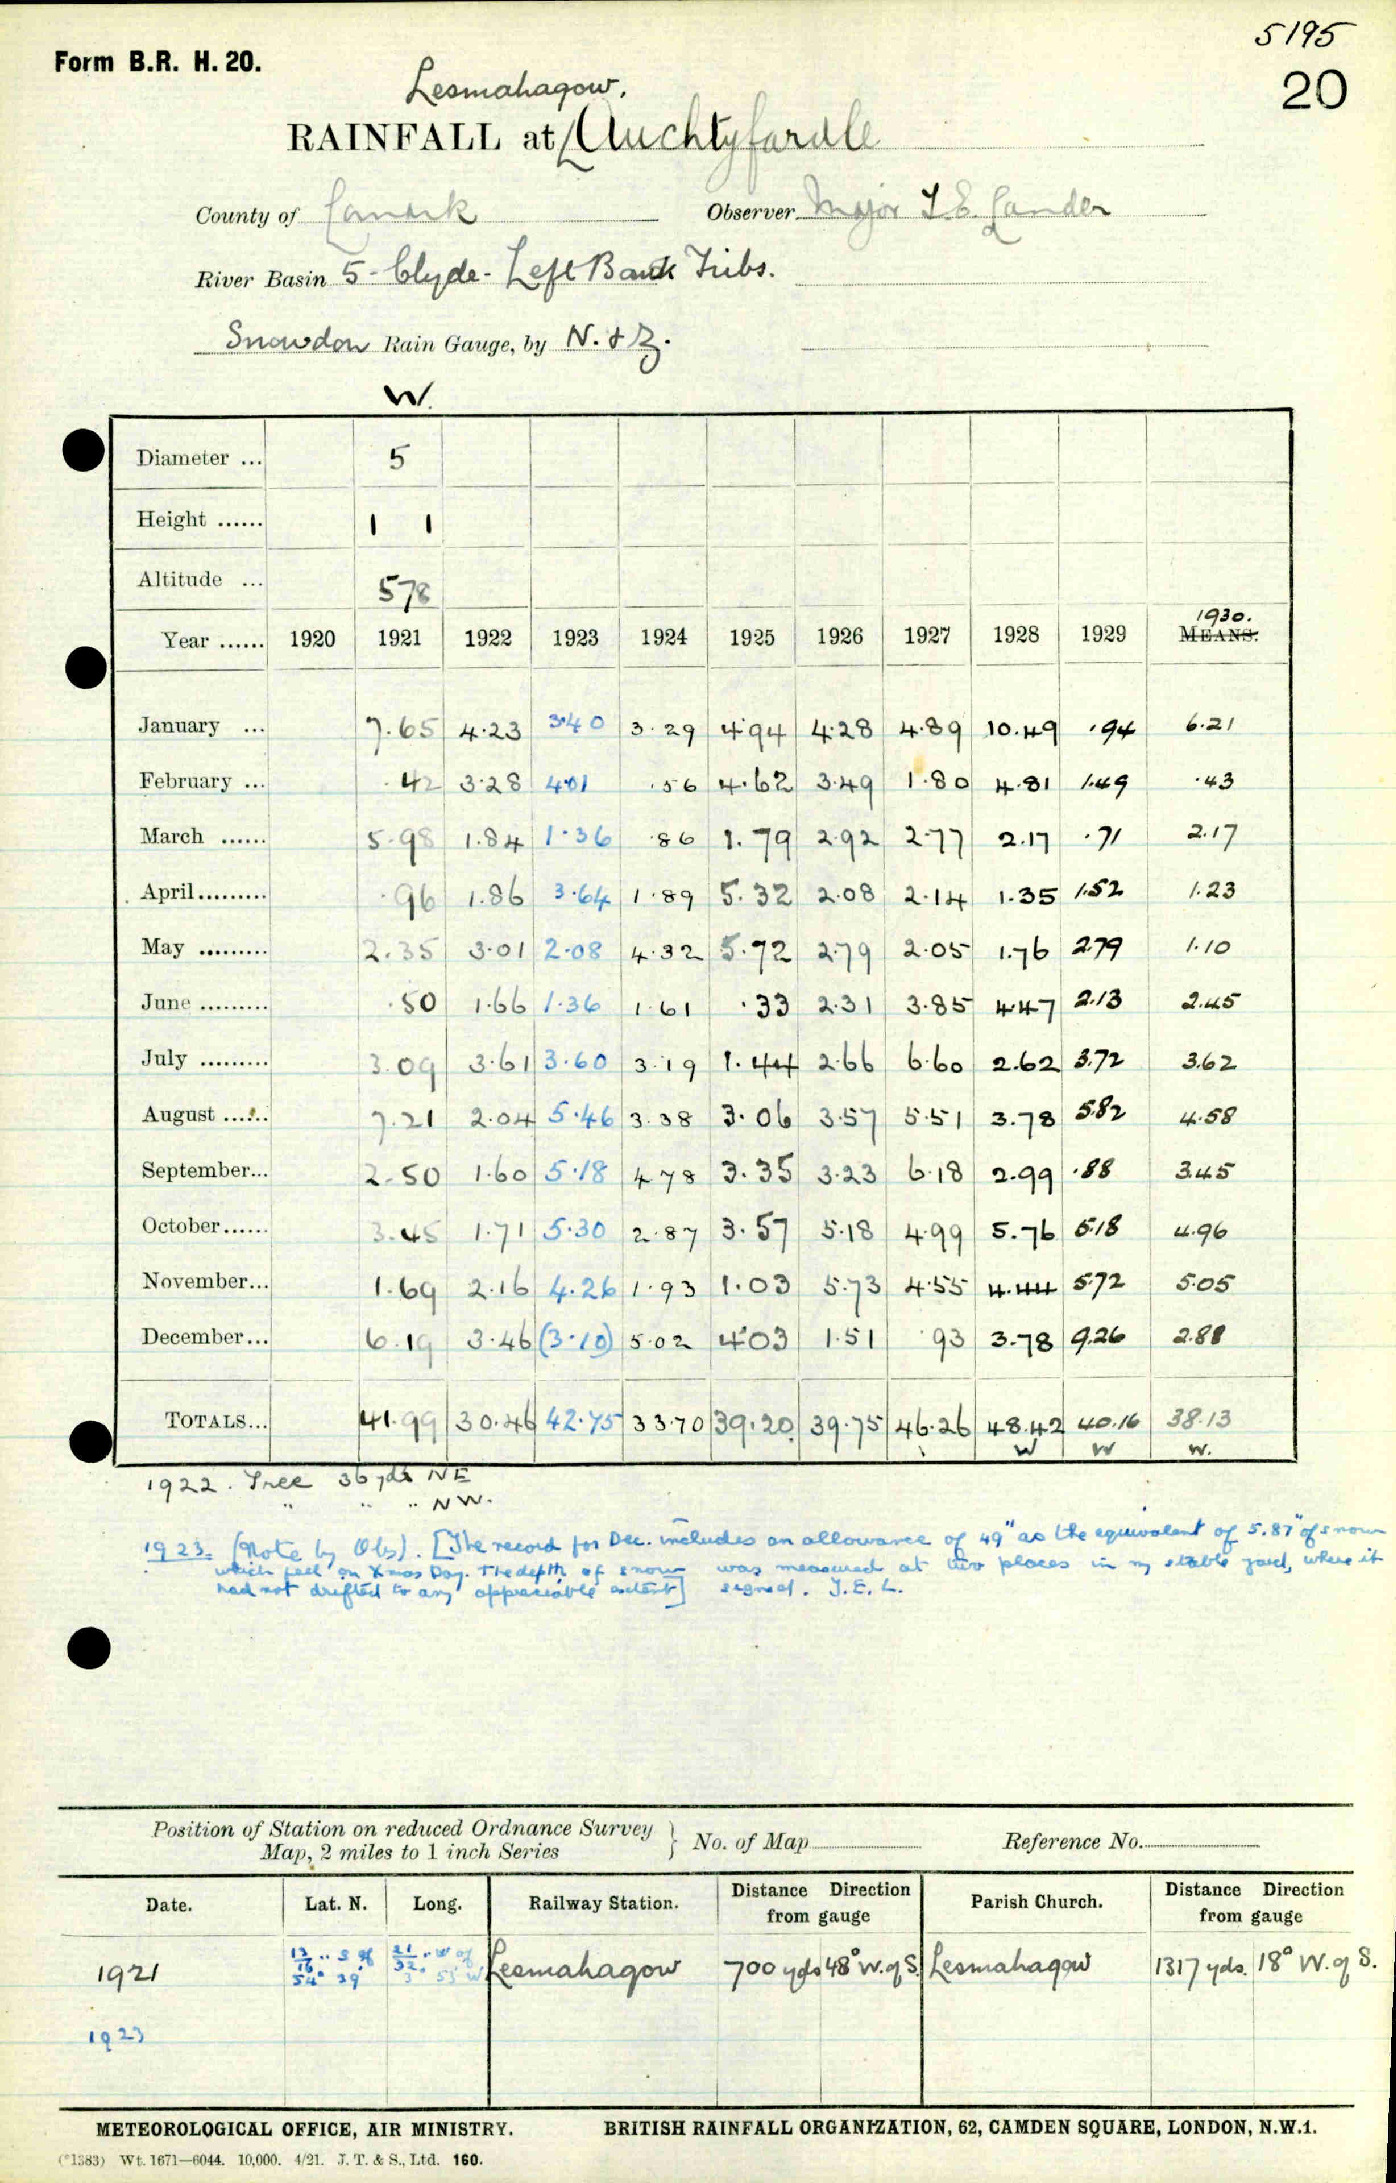 5195
Form B.R. H. 20.
20
Lesmahagow.
RAINFALL at Auchtyfardle
County of Lanark Observer Major T E Lander
River Basin 5 - Clyde - Left Bank Tribs.
Snowdon Rain Gauge, by N. & Z.
W.
Diameter ... 5
Height ...... 1 1
Altitude ... 578
1930.
Year ...... 1920 1921 1922 1923 1924 1925 1926 1927 1928 1929 MEANS.
January ... 7.65 4.23 3.40 3.29 4.94 4.28 4.89 10.49 .94 6.21
February ... .42 3.28 4.01 .56 4.62 3.49 1.80 4.81 1.49 .43
March ...... 5.98 1.84 1.36 .86 1.79 2.92 2.77 2.17 .71 2.17
April ......... .96 1.86 3.64 1.89 5.32 2.08 2.14 1.35 1.52 1.23
May ......... 2.35 3.01 2.08 4.32 5.72 2.79 2.05 1.76 2.79 1.10
June ......... .50 1.66 1.36 1.61 .33 2.31 3.85 4.47 2.13 2.45
July ......... 3.09 3.61 3.60 3.19 1.44 2.66 6.60 2.62 3.72 3.62
August ...... 7.21 2.04 5.46 3.38 3.06 3.57 5.51 3.78 5.82 4.58
September... 2.50 1.60 5.18 4.78 3.35 3.23 6.18 2.99 .88 3.45
October...... 3.45 1.71 5.30 2.87 3.57 5.18 4.99 5.76 5.18 4.96
November... 1.69 2.16 4.26 1.93 1.03 5.73 4.55 4.44 5.72 5.05
December... 6.19 3.46 (3.10) 5.02 4.03 1.51 .93 3.78 9.26 2.88
TOTALS... 41.99 30.46 42.75 33.70 39.20 39.75 46.26 48.42 40.16 38.13
W W W.
1922. Tree 36 yds NE
" " " NW.
1923. (Note by Obs). [The record for Dec. includes an allowance of 49" as the equivalent of 5.87" of snow
which fell on Xmas Day. The depth of snow was measured at two places in my stable yard, where it
had not drifted to any appreciable extent] signed. T.E.L.
Position of Station on reduced Ordnance Survey
Map, 2 miles to 1 inch Series } No. of Map Reference No.
Date. Lat. N. Long. Railway Station. Distance Direction from gauge Parish Church. Distance Direction from gauge
13/16" S of 21/32" W of
1921 54° 39' 3° 55' W Lesmahagow 700 yds 48° W. of S. Lesmahagow 1317 yds. 18° W. of S.
1923
METEOROLOGICAL OFFICE, AIR MINISTRY. BRITISH RAINFALL ORGANIZATION, 62, CAMDEN SQUARE, LONDON, N.W.1.
(*1383) Wt. 1671—6044. 10,000. 4/21. J. T. & S., Ltd. 160.